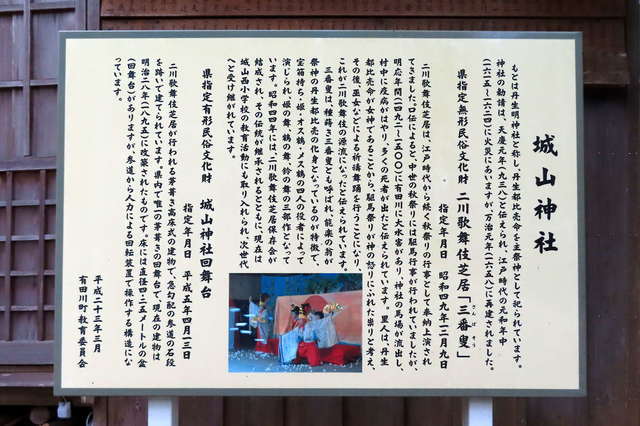 城山神社
もとは丹生明神社と称し、丹生都比売命を主祭神として祀られています。
神社の勧請は、天慶元年(九三八)と伝えられ、江戸時代の元和年中
(一六一五~一六二四)に火災にあいますが、万治元年(一六五八)に再建されました。
県指定無形民俗文化財 二川歌舞伎芝居「三番叟」
さんばそう
指定年月日 昭和四九年一二月九日
二川歌舞伎芝居は、江戸時代から続く秋祭りの行事として奉納上演され
てきました。口伝によると、中世の秋祭りには駆馬行事が行われていましたが、
明応年間(一四九二~一五〇〇)に有田川に大水害があり、神社の馬場が流出し、
村中に疫病がはやり、多くの死者が出たと伝えられています。里人は、丹生
都比売命が女神であることから、駆馬祭りが神の怒りにふれた祟りと考え、
その後、巫女などによる祈祷舞踊を行うことになり、
これが二川歌舞伎の源流になったと伝えられています。
三番叟は、種蒔き三番叟とも呼ばれ、能楽の翁が
祭神の丹生都比売の化身となっているのが特徴で、
宝箱持ち・姫・オス鶴・メス鶴の四人の役者によって
演じられ、姫の舞、鶴の舞、鈴の舞の三部作となって
います。昭和四四年には、二川歌舞伎芝居保存会が
結成され、その伝統が継承されるとともに、現在は
城山西小学校の教育活動にも取り入れられ、次世代
へと受け継がれています。
県指定有形民俗文化財 城山神社回舞台
指定年月日 平成五年四月一三日
二川歌舞伎芝居が行われる茅葺き高床式の建物で、急勾配の参道の石段
を跨いで建てられています。県内で唯一の茅葺きの回舞台で、現在の建物は
明治二八年(一八九五)に改築されたものです。床には直径四・二五メートルの盆
(回舞台)がありますが、参道から人力による回転装置で操作する構造にな
っています。
平成二十三年三月
有田川町教育委員会